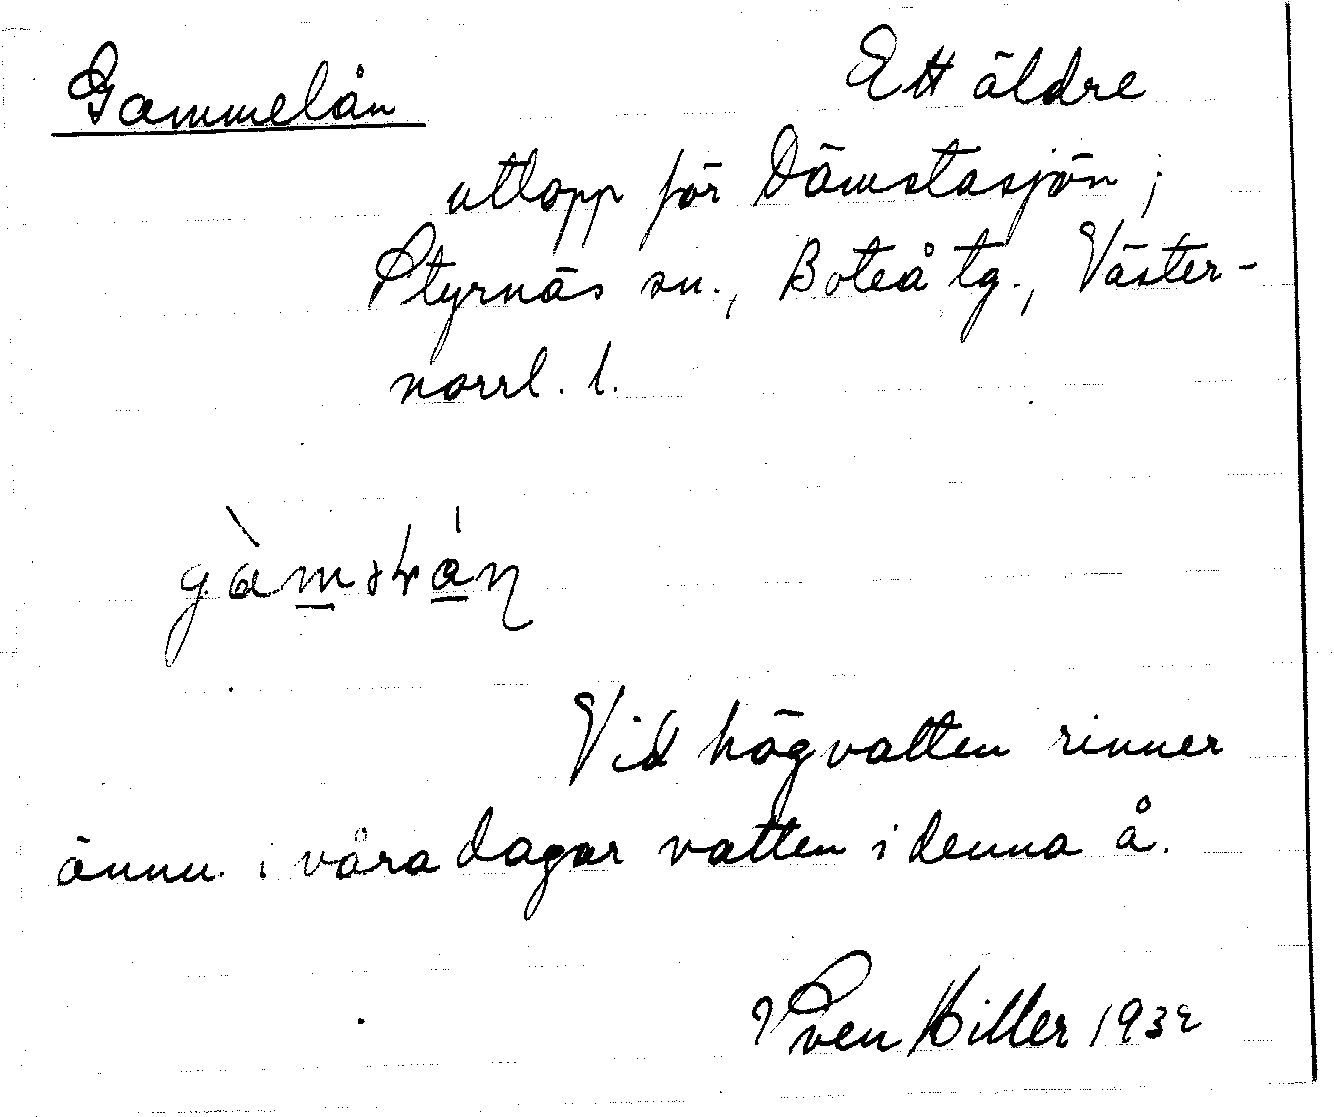 Gammelån Ett äldre
utlopp för Dämstasjön;
Styrnäs sn., Boteå tg., Väster-
norrl. l.
Vid högvatten rinner
ännu i våra dagar vatten i denna å.
Sven Hiller 1932